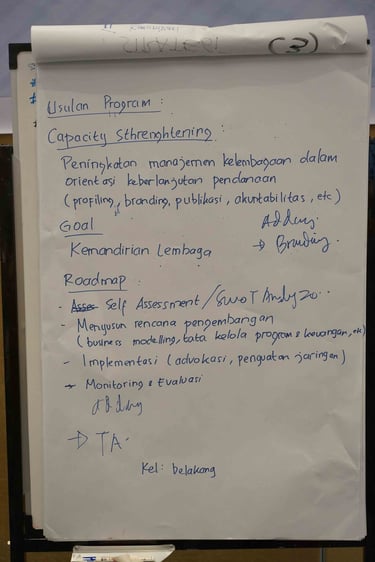 (3)
Usulan Program :
Capacity Sthrenghtening :
Peningkatan manajemen kelembagaan dalam
orientasi keberlanjutan pendanaan
(profiling, branding, publikasi, akuntabilitas, etc)
Goal
Adding.
→ Branding.
Kemandirian Lembaga
Roadmap :
- Asses Self Assessment / SWOT
- Menyusun rencana pengembangan
(business modelling, tata kelola program & keuangan, etc)
- Implementasi (advokasi, penguatan jaringan)
- Monitoring & Evaluasi
Adding
→ TA.
Kel: belakang